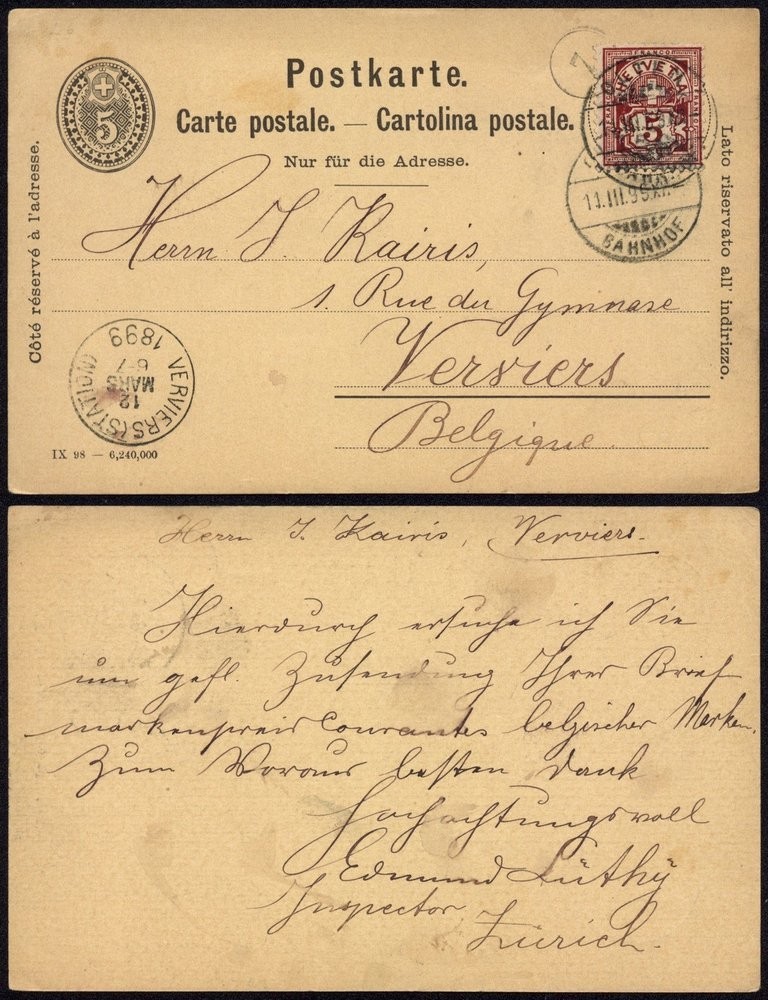 Postkarte.
Carte postale. — Cartolina postale.
Nur für die Adresse.
Côté réservé à l'adresse.
Lato riservato all' indirizzo.
5
Z
HELVETIA
FRANCO
5
11.III.99.XII
BAHNHOF
Herrn J. Kairis,
1. Rue du Gymnase
Verviers
Belgique.
VERVIERS (STATION)
12
MARS
6-7
1899
IX 98 — 6,240,000
Herrn J. Kairis, Verviers.
Hierdurch ersuche ich Sie
um gefl. Zusendung Ihrer Brief-
markenpreis Courantes belgischer Marken.
Zum Voraus besten Dank
Hochachtungsvoll
Edmund Lüthy
Inspector
Zürich.